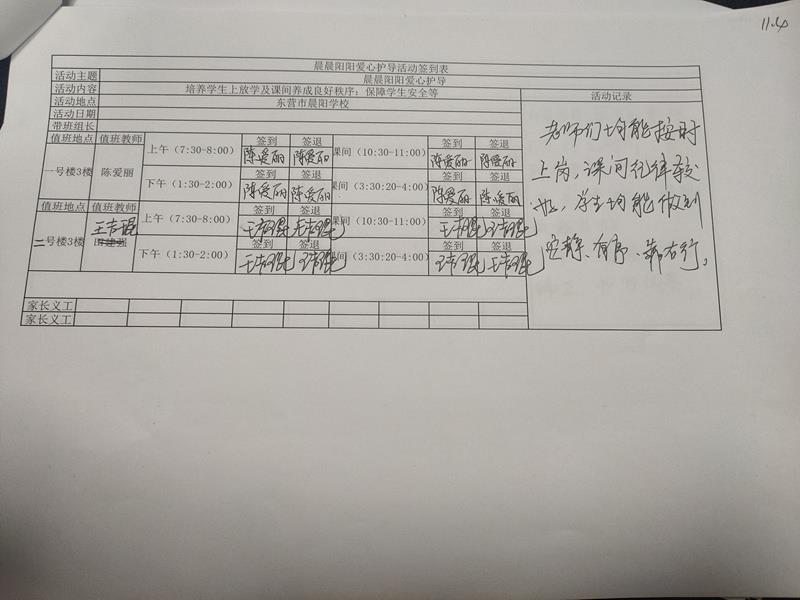 11.4
晨晨阳阳爱心护导活动签到表
活动主题 晨晨阳阳爱心护导
活动内容 培养学生上放学及课间养成良好秩序；保障学生安全等 活动记录
活动地点 东营市晨阳学校
活动日期
带班组长
值班地点 值班教师 签到 签退 签到 签退
一号楼3楼 陈爱丽 上午（7:30-8:00） 陈爱丽 陈爱丽 课间（10:30-11:00） 陈爱丽 陈爱丽
签到 签退 签到 签退
下午（1:30-2:00） 陈爱丽 陈爱丽 课间（3:30:20-4:00） 陈爱丽 陈爱丽
值班地点 值班教师 签到 签退 签到 签退
二号楼3楼 上午（7:30-8:00） 课间（10:30-11:00）
签到 签退 签到 签退
下午（1:30-2:00） 间（3:30:20-4:00）
家长义工
家长义工
老师们均能按时
上岗，课间纪律较
好，学生均能做到
安静、有序、靠右行。